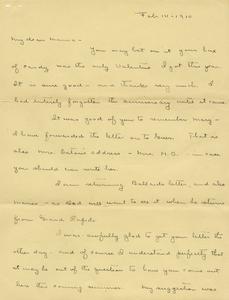 Feb. 14-1910
My dear Mama-
You may bet on it your box
of candy was the only Valentine I got this year.
It is sure good- and thanks very much. I
had entirely forgotten the anniversary until it came.
It was good of you to remember Mary-
I have forwarded the letter on to Queen. That is
also Mrs. Eaton's address - Mrs. H.O. - in case
you should ever write her.
I am returning letter, and also
as Dad will want to see it when he returns
from Grand Rapids.
I was awfully glad to get your letter the
other day- and of course I understand perfectly that
it may be out of the question to have you come out
here this coming summer. My suggestion was